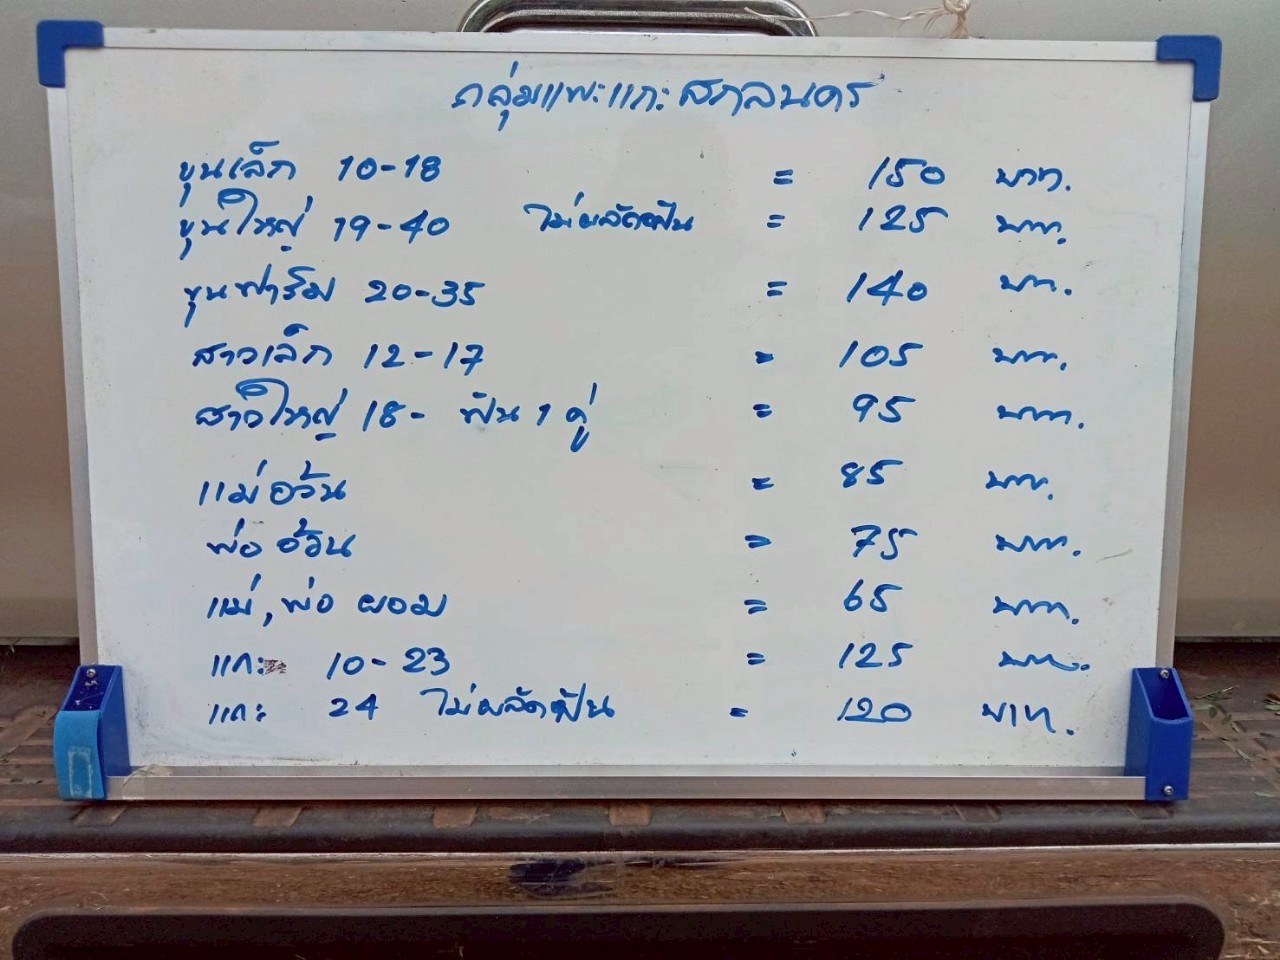 กลุ่มแพะแกะสกลนคร
ขุนเล็ก 10-18 = 150 บาท.
ขุนใหญ่ 19-40 ไม่ผลัดฟัน = 125 บาท.
ขุนฟาร์ม 20-35 = 140 บาท.
สาวเล็ก 12-17 = 105 บาท.
สาวใหญ่ 18- ฟัน 1 คู่ = 95 บาท.
แม่อ้วน = 85 บาท.
พ่ออ้วน = 75 บาท.
แม่, พ่อ ผอม = 65 บาท.
แกะ 10-23 = 125 บาท.
แกะ 24 ไม่ผลัดฟัน = 120 บาท.